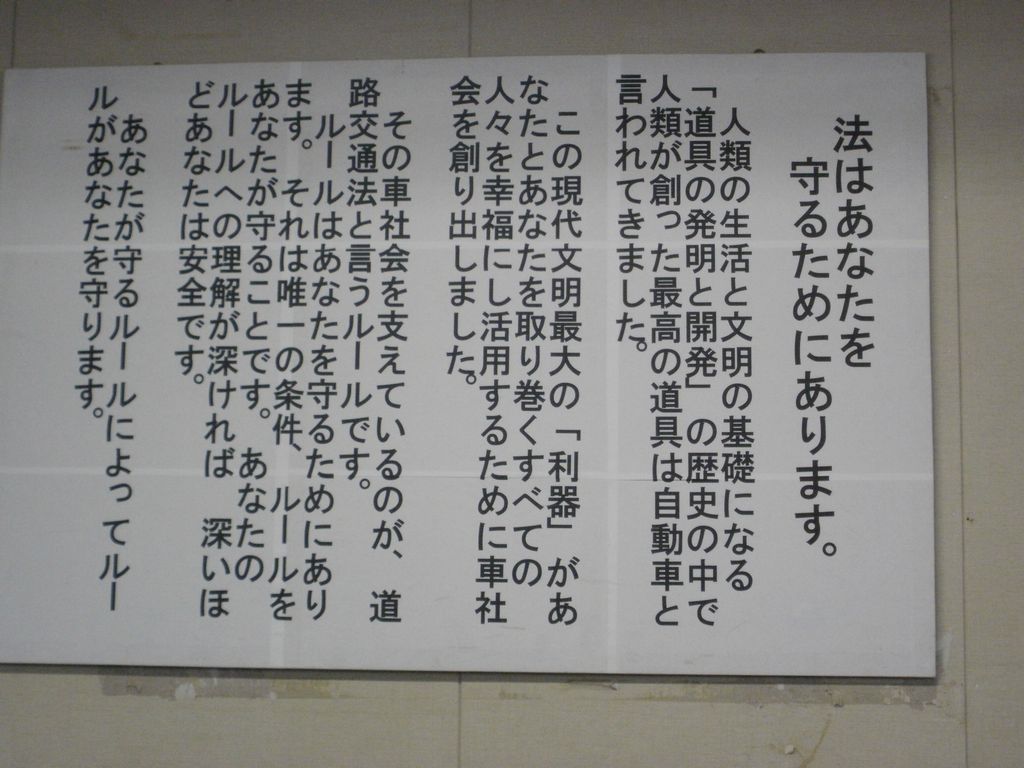 法はあなたを
守るためにあります。
人類の生活と文明の基礎になる
「道具の発明と開発」の歴史の中で
人類が創った最高の道具は自動車と
言われてきました。
この現代文明最大の「利器」があ
なたとあなたを取り巻くすべての
人々を幸福にし活用するために車社
会を創り出しました。
その車社会を支えているのが、道
路交通法と言うルールです。
ルールはあなたを守るためにあり
ます。それは唯一の条件、ルールを
あなたが守ることです。あなたの
ルールへの理解が深ければ 深いほ
どあなたは安全です。
あなたが守るルールによってルー
ルがあなたを守ります。